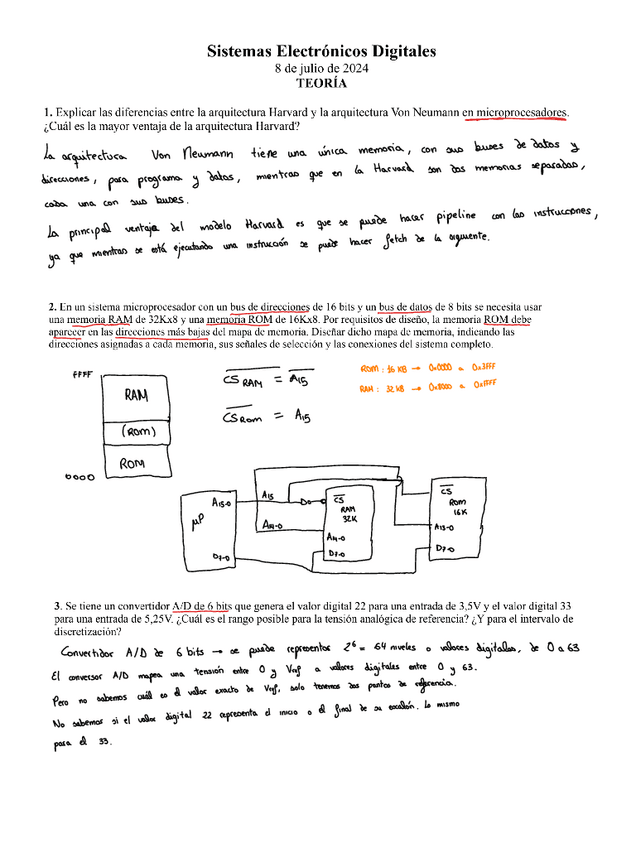 Sistemas Electrónicos Digitales
8 de julio de 2024
TEORÍA
1. Explicar las diferencias entre la arquitectura Harvard y la arquitectura Von Neumann en microprocesadores.
¿Cuál es la mayor ventaja de la arquitectura Harvard?
La arquitectura Von Neumann tiene una única memoria, con sus buses de datos y
direcciones, para programa y datos, mientras que en la Harvard son dos memorias separadas,
cada una con sus buses.
La principal ventaja del modelo Harvard es que se puede hacer pipeline con las instrucciones,
ya que mientras se está ejecutando una instrucción se puede hacer fetch de la siguiente.
2. En un sistema microprocesador con un bus de direcciones de 16 bits y un bus de datos de 8 bits se necesita usar
una memoria RAM de 32Kx8 y una memoria ROM de 16Kx8. Por requisitos de diseño, la memoria ROM debe
aparecer en las direcciones más bajas del mapa de memoria. Diseñar dicho mapa de memoria, indicando las
direcciones asignadas a cada memoria, sus señales de selección y las conexiones del sistema completo.
FFFF
RAM
(ROM)
ROM
0000
CS RAM = A15
CS ROM = A15
ROM: 16 KB → 0x0000 a 0x3FFF
RAM: 32 KB → 0x8000 a 0xFFFF
μP
A15-0
D7-0
A15
A14-0
CS
RAM
32K
A14-0
D7-0
CS
ROM
16K
A13-0
D7-0
3. Se tiene un convertidor A/D de 6 bits que genera el valor digital 22 para una entrada de 3,5V y el valor digital 33
para una entrada de 5,25V. ¿Cuál es el rango posible para la tensión analógica de referencia? ¿Y para el intervalo de
discretización?
Convertidor A/D de 6 bits → se puede representar 2^6 = 64 niveles o valores digitales, de 0 a 63
El conversor A/D mapea una tensión entre 0 y Vref a valores digitales entre 0 y 63.
Pero no sabemos cuál es el valor exacto de Vref, solo tenemos dos puntos de referencia.
No sabemos si el valor digital 22 representa el inicio o el final de su escalón. Lo mismo
para el 33.